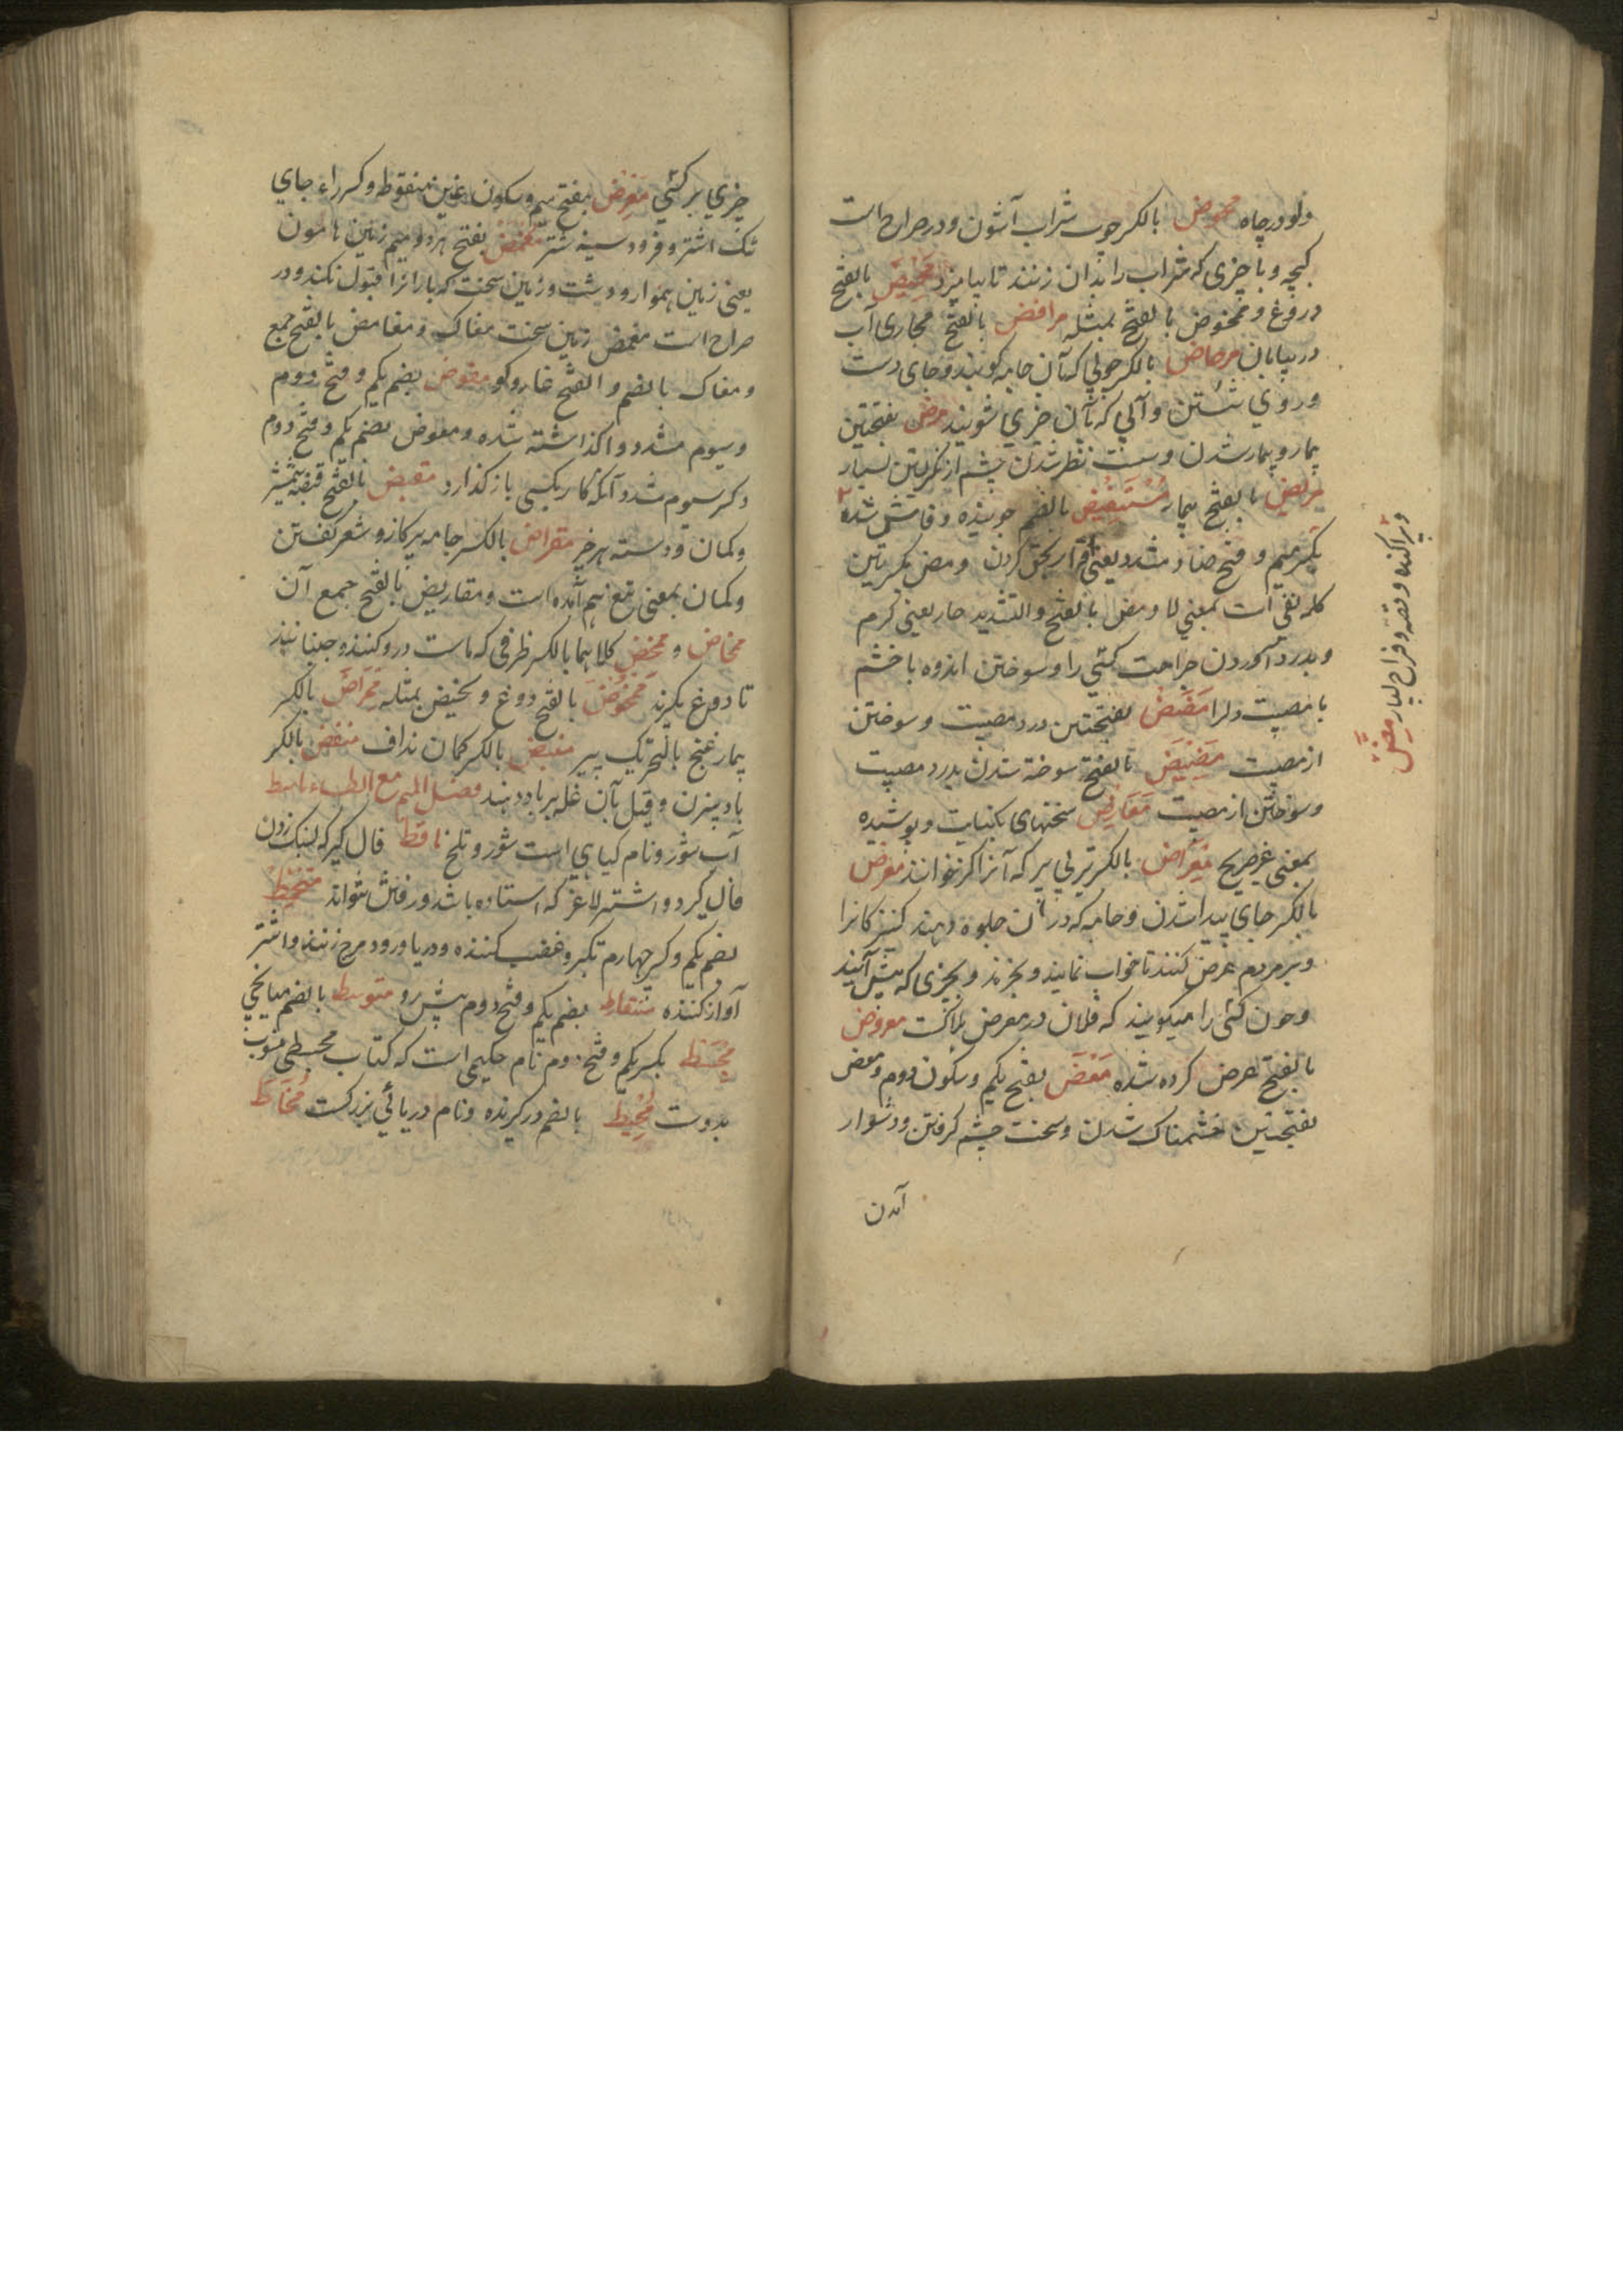 دلو در چاه مخوض بالکسر چوب شراب آشون و در صراح است
کبچه و یا چیزی که شراب را بدان زنند تا بیامیزد مخیض بالفتح
دروغ و ممخوض بالفتح بمثله مرافض بالفتح مجاری آب
در بیابان مرحاض بالکسر چوبی که بآن جامه کوبند و جای دست
و روی شستن و آلی که بآن چیزی شویند مرض بفتحتین
بیمار و بیمار شدن و سست نظر شدن چشم از نگریستن بسیار
مریض بالفتح بیمار مستفیض بالضم جوینده و فاش شده
بکسر میم و فتح ضاد مشدد یعنی اقرار بحق کردن و مض بکسرتین
کلمه نفی است بمعنی لا و مض بالفتح و التشدید حار یعنی گرم
و بدرد آوردن جراحت کسی را و سوختن اندوه یا خشم
یا مصیبت دل را مضض بفتحتین درد مصیبت و سوختن
از مصیبت مضیض بالفتح سوخته شدن بدرد مصیبت
و سوختن از مصیبت معاریض سخنهای بکنایت و پوشیده
بمعنی غیر صریح معراض بالکسر تیر بی پر که آنرا گز خوانند معرض
بالکسر جای پیدا شدن و جامه که در آن جلوه دهند کنیزکانرا
و بر مردم عرض کنند تا خواب نمایند و بخرند و بچیزی که پیش آیند
و چون کسی را میگویند که فلان در معرض هلاکست معروض
بالفتح عرض کرده شده معض بفتح یکم و سکون دوم و معض
بفتحتین خشمناک شدن و سخت چشم گرفتن و دشوار
آمدن
و پراکنده و قصه و فراخ بسیار مض
چیزی بر کسی مغرض بفتح میم و سکون غین منقوط و کسر راء جای
تنگ اشتر و فرود سینه شتر مغمض بفتح هر دو میم زمین هامون
یعنی زمین هموار و دشت و زمین سخت که بارانرا قبول نکند و در
صراح است مغمض زمین سخت مغاک و مغامض بالفتح جمع
و مغاک بالضم و الفتح غار و گو مفوض بضم یکم و فتح دوم
و سیوم مشدد واگذاشته شده و مفوض بضم یکم و فتح دوم
و کسر سیوم مشدد آنکه کار بکسی بازگذارد مقبض بالفتح قبضه شمشیر
و کمان و دسته هر چیز مقراض بالکسر جامه بر کاز و شعر گفتن
و کمان بمعنی تیغ هم آمده است و مقاریض بالفتح جمع آن
مخاض و مخض کلاهما بالکسر ظرفی که ماست درو کنند و جنبانند
تا دوغ بگیرند ممخوض بالفتح دوغ و مخیض بمثله ممراض بالکسر
بیمار غنج بالتحریک پیر منبض بالکسر کمان نداف منفض بالکسر
بادبیزن و قیل بآن غله بر باد دهند فصل المیم مع الطاء ماسط
آب شور و نام گیاهی است شور و تلخ ماقط فال گیر که بسنگ زدن
فال گیرد و اشتر لاغر که استاده باشد و رفتن نتواند متخمط
بضم یکم و کسر چهارم تکبر و غضب کننده و دریا و رود موج زننده و اشتر
آواز کننده متقاط بضم یکم و فتح دوم پیش رو متوسط بالضم میانجی
مجسط بکسر یکم و فتح دوم نام حکیمی است که کتاب مجسطی منسوب
بدوست محیط بالضم درگیرنده و نام دریائی بزرگست مخاط